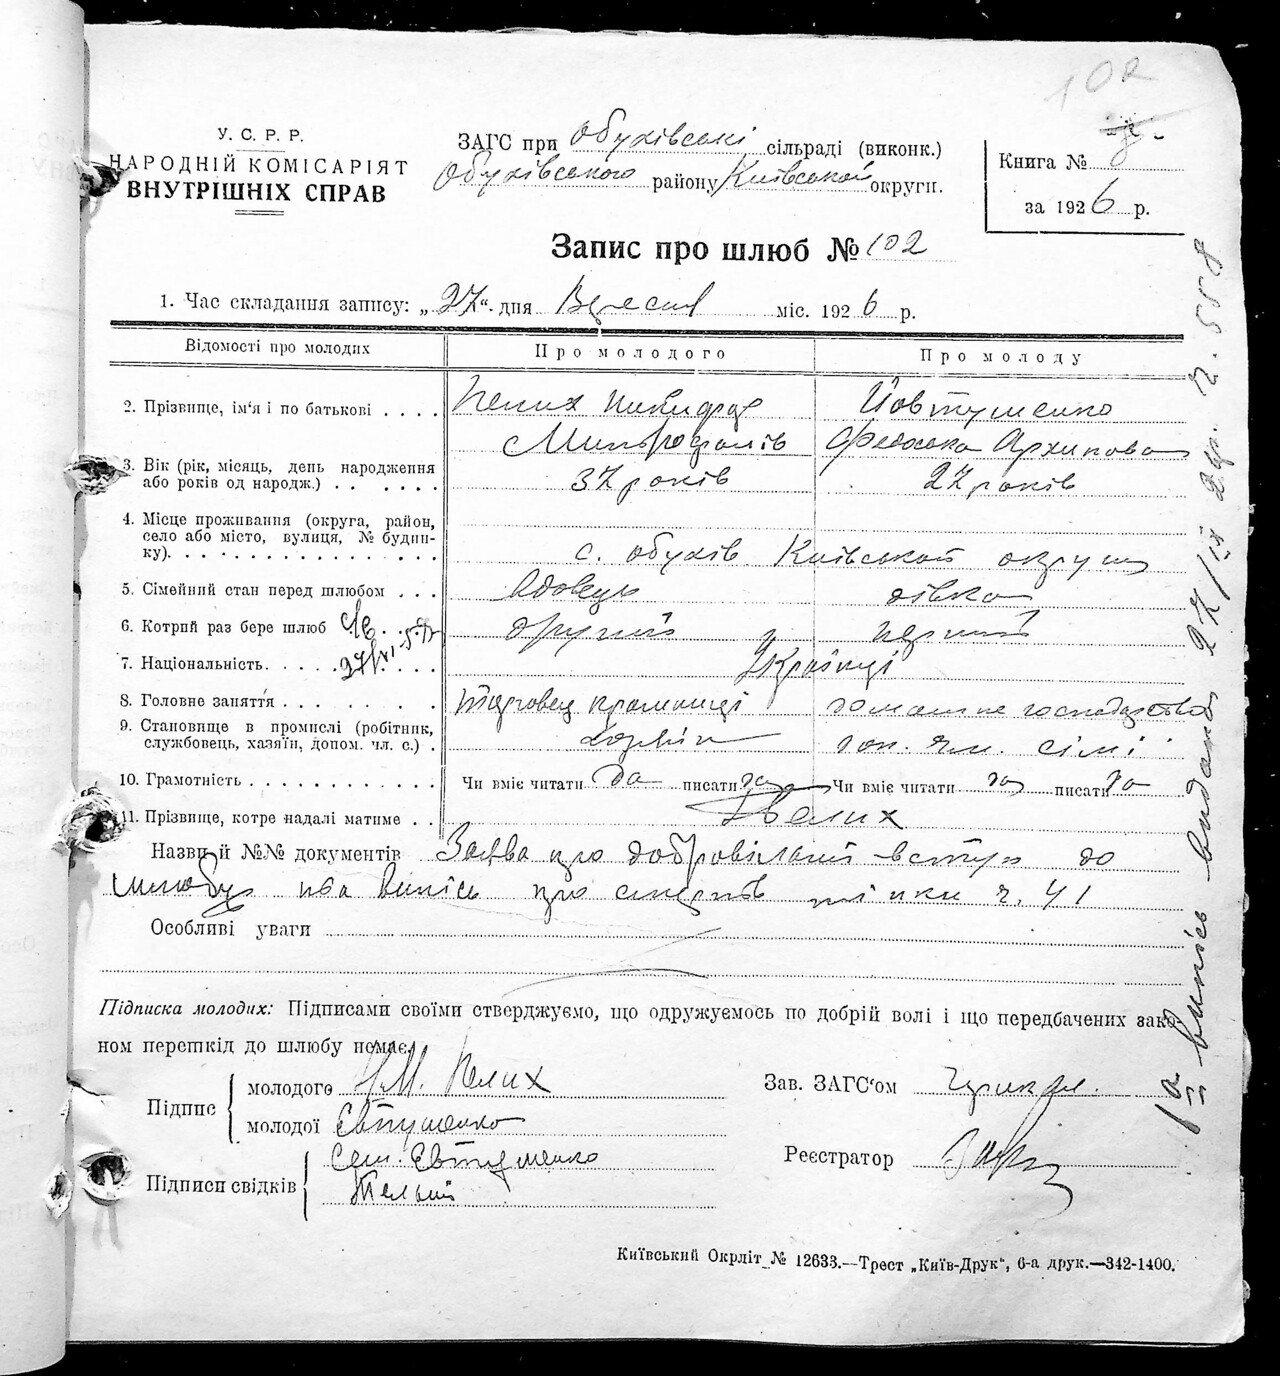 102
У. С. Р. Р.
НАРОДНІЙ КОМІСАРІЯТ
ВНУТРІШНІХ СПРАВ
ЗАГС при Обухівські сільраді (виконк.)
Обухівського району Київської округи.
Книга №
за 1926 р.
Запис про шлюб № 102
1. Час складання запису: „27“ дня Вересня міс. 1926 р.
Відомості про молодих Про молодого Про молоду
2. Прізвище, ім'я і по батькові . . . . Пелих Никифор Йовтушенко
Митрофанів Федоська Архипова
3. Вік (рік, місяць, день народження
або років од народж.) . . . . . . 37 років 27 років
4. Місце проживання (округа, район,
село або місто, вулиця, № будин-
ку). . . . . . . . . . . . . . . . с. Обухів Київської округи
5. Сімейний стан перед шлюбом . . . вдовець дівка
6. Котрий раз бере шлюб другий перший
7. Національність. . . . . . . . Українці
8. Головне заняття . . . . . . . торговец крамниці домашне господарство
9. Становище в промислі (робітник,
службовець, хазяїн, допом. чл. с.) . хазяїн доп. чл. сімї
10. Грамотність . . . . . . . . . . Чи вміє читати да писати да Чи вміє читати да писати да
11. Прізвище, котре надалі матиме . . Пелих
Назви й №№ документів Заява про добровільний вступ до
шлюбу та випись про смерть жінки ч. 41
Особливі уваги
Підписка молодих: Підписами своїми стверджуємо, що одружуємось по добрій волі і що передбачених зако-
ном перешкід до шлюбу немає.
Підпис молодого Н М. Пелих
молодої Евтушенко
Підписи свідків Сем. Евтушенко
Зав. ЗАГС'ом
Реєстратор
1а випись видана 27/IX 26р. ч. 558
Київський Окрліт № 12633.—Трест „Київ-Друк“, 6-а друк.—342-1400.